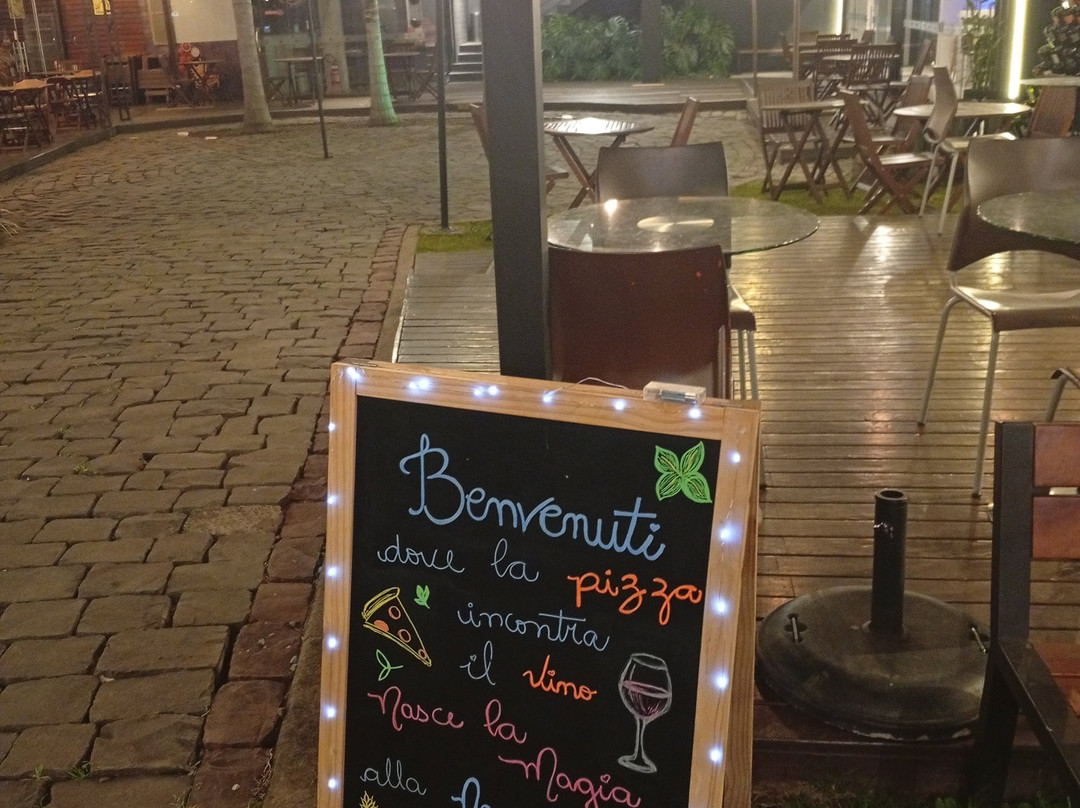 Benvenuti
dove la pizza
incontra
il vino
Nasce la
Magia
alla